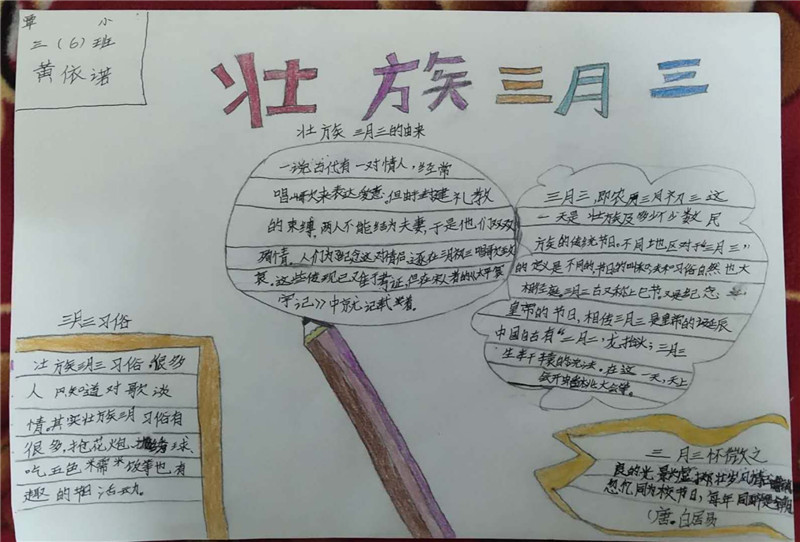 覃 小
三(6)班
黄依诺
壮族三月三
壮族三月三的由来
一说古代有一对情人，经常
唱山歌来表达爱意。但由于封建礼教
的束缚，两人不能结为夫妻，于是他们双双
殉情。人们为纪念这对情侣，遂在三月初三唱歌
哀。这些传现已又难于考证，但在宋人者的《太平寰
宇记》中就元记载
三月三，即农历三月初三这
一天是壮族及多个少数民
族的传统节日。不同地区对于"三月三"
的定义是不同的，节日的由来和习俗自然也大
相径庭。三月三古又称上巳节又是纪念
皇帝的节日，相传三月三是皇帝的诞辰
中国自古有"二月二，龙抬头；三月三
生轩辕的说法。在这一天，天上
三月三习俗
壮族三月三习俗很多
人只知道对歌谈
情。其实壮族三月习俗有
很多，抢花炮、绣球、
吃五色糯米饭等也有
趣的活动。
三月三怀微之
良的光景
想忆同为校节日，每年同
(唐。白居易